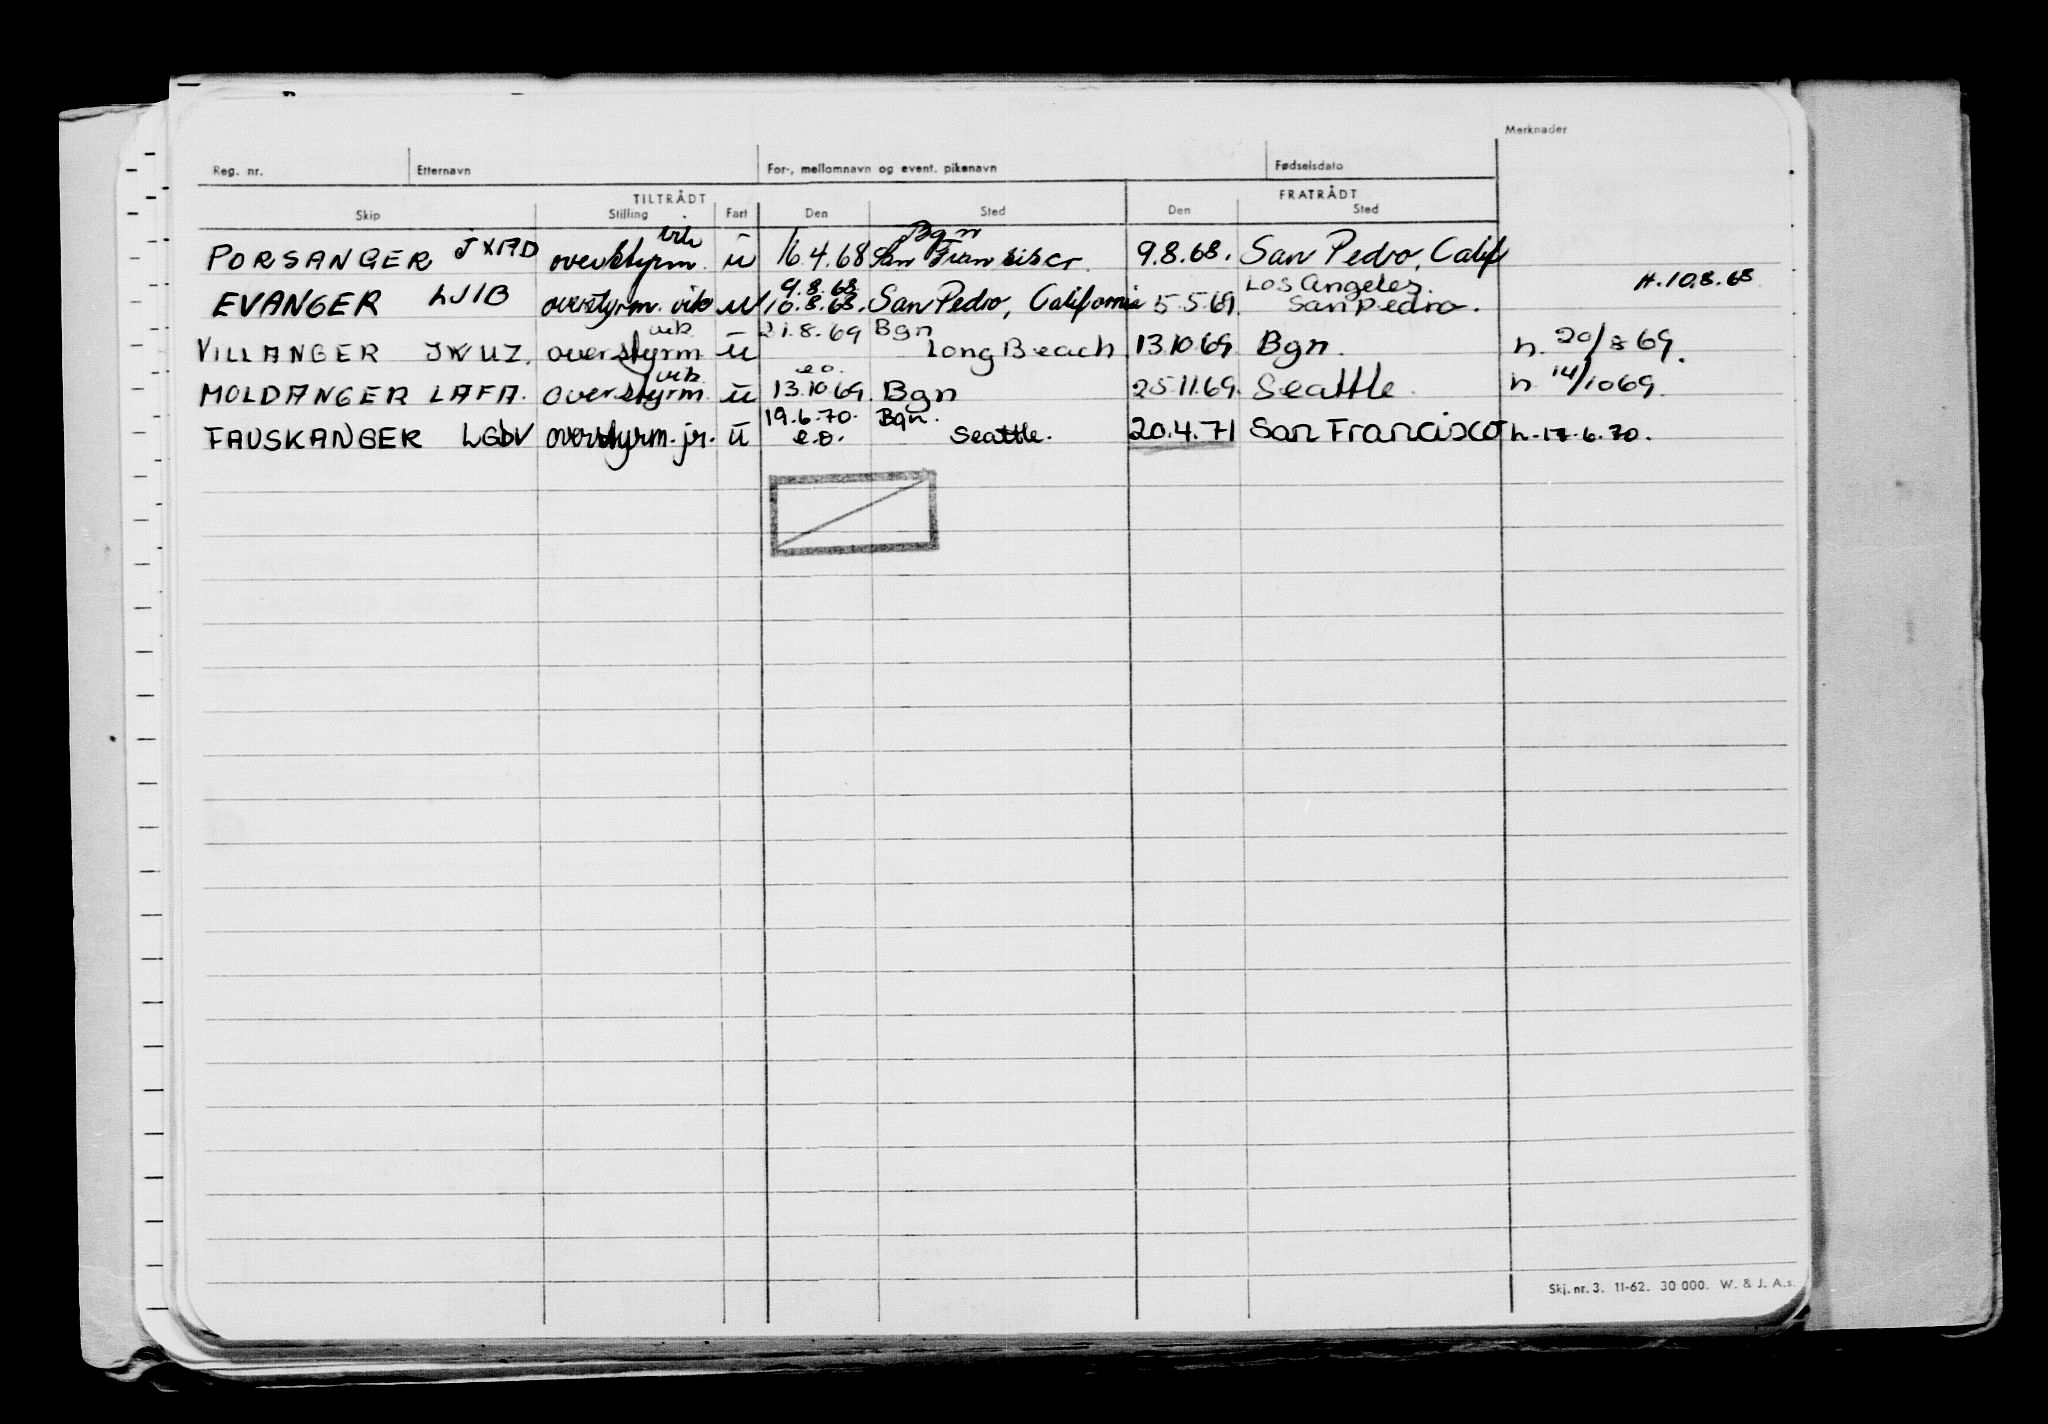 Merknader
Reg. nr. Etternavn For-, mellomnavn og event. pikenavn Fødselsdato
TILTRÅDT FRATRÅDT
Skip Stilling Fart Den Sted Den Sted
vik Bgn
PORSANGER JXAD overstyrm. u 16.4.68 San Fransisco. 9.8.68. San Pedro, Calif
9.8.68 Los Angeles. H.10.8.68
EVANGER LJIB overstyrm. vik u 10.8.68. San Pedro, California 5.5.69. San Pedro.
vik 21.8.69 Bgn
VILLANGER JWUZ. overstyrm u Long Beach 13.10.69. Bgn. h. 20/8 69.
vik e.o.
MOLDANGER LAFA. overstyrm. u 13.10.69. Bgn 25.11.69. Seattle. h 14/10 69.
19.6.70. Bgn.
FAUSKANGER overstyrm. jr. u e.o. Seattle. 20.4.71 San Francisco h. 17.6.70.
Skj. nr. 3. 11-62. 30 000. W. & J. A.s.